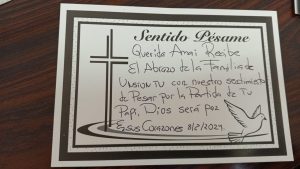 Sentido Pésame
Querida Amai Recibe
El Abrazo de la Familia de
Unsion TV con nuestro sentimiento
de Pesar por la Partida de Tu
Papi, Dios será paz
En sus Corazones 8/2/2021